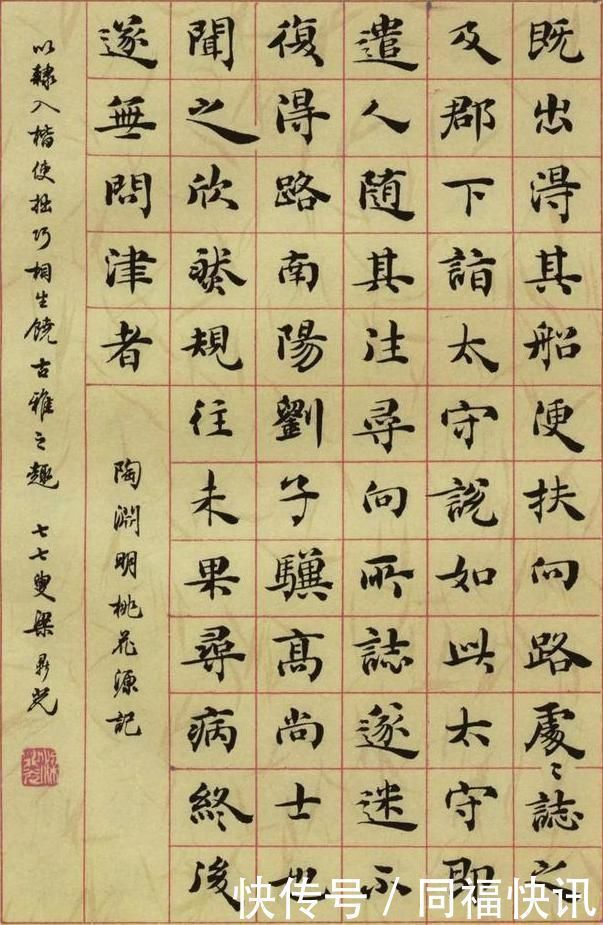 既出得其船便扶向路處々誌之
及郡下詣太守說如此太守即
遣人随其往尋向所誌遂迷不
復得路南陽劉子驥高尚士也
聞之欣然規往未果尋病終後
遂無問津者
陶淵明桃花源記
以隸入楷使拙巧相生饒古雅之趣 七七叟梁鼎光
快传号 / 同福快讯